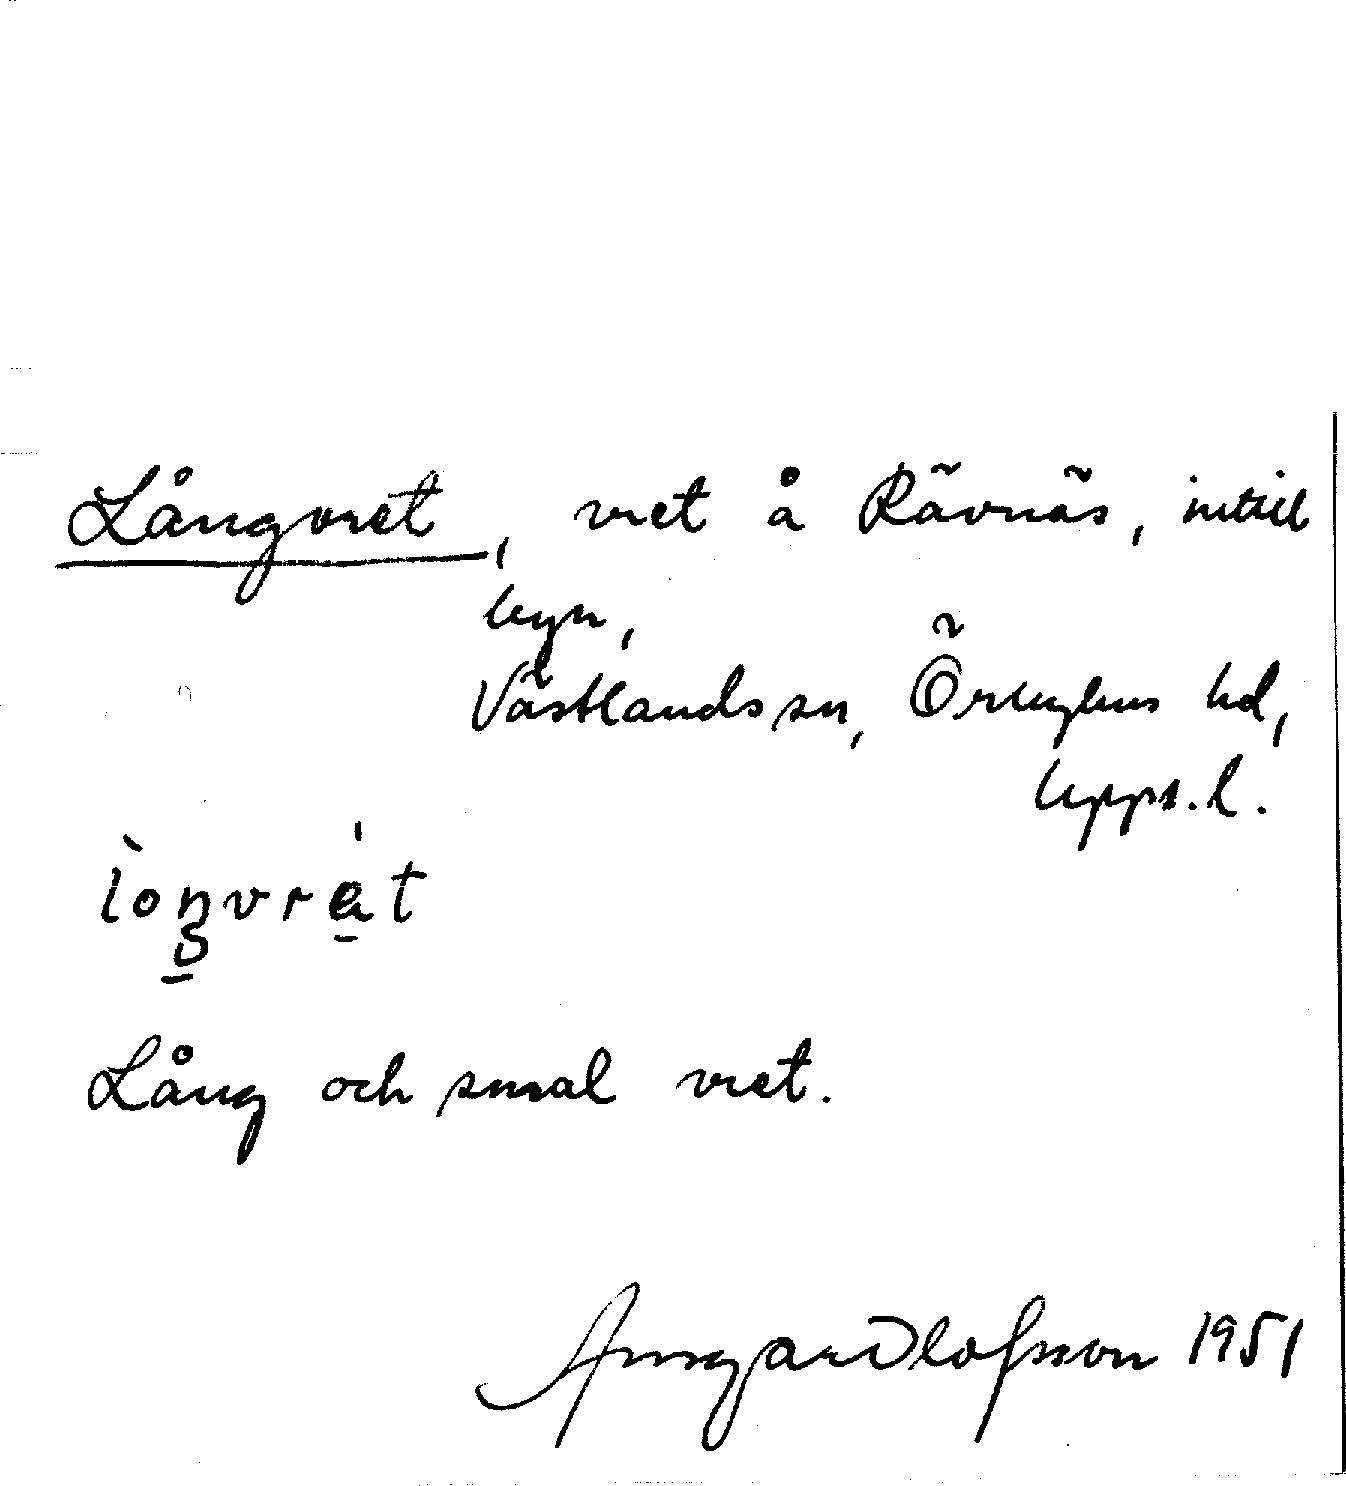 Långvret, vret å Rävnäs, intill
byn,
Västlands sn, Örbyhus hd,
Upps. l.
Lång och smal vret.
Olofsson 1951